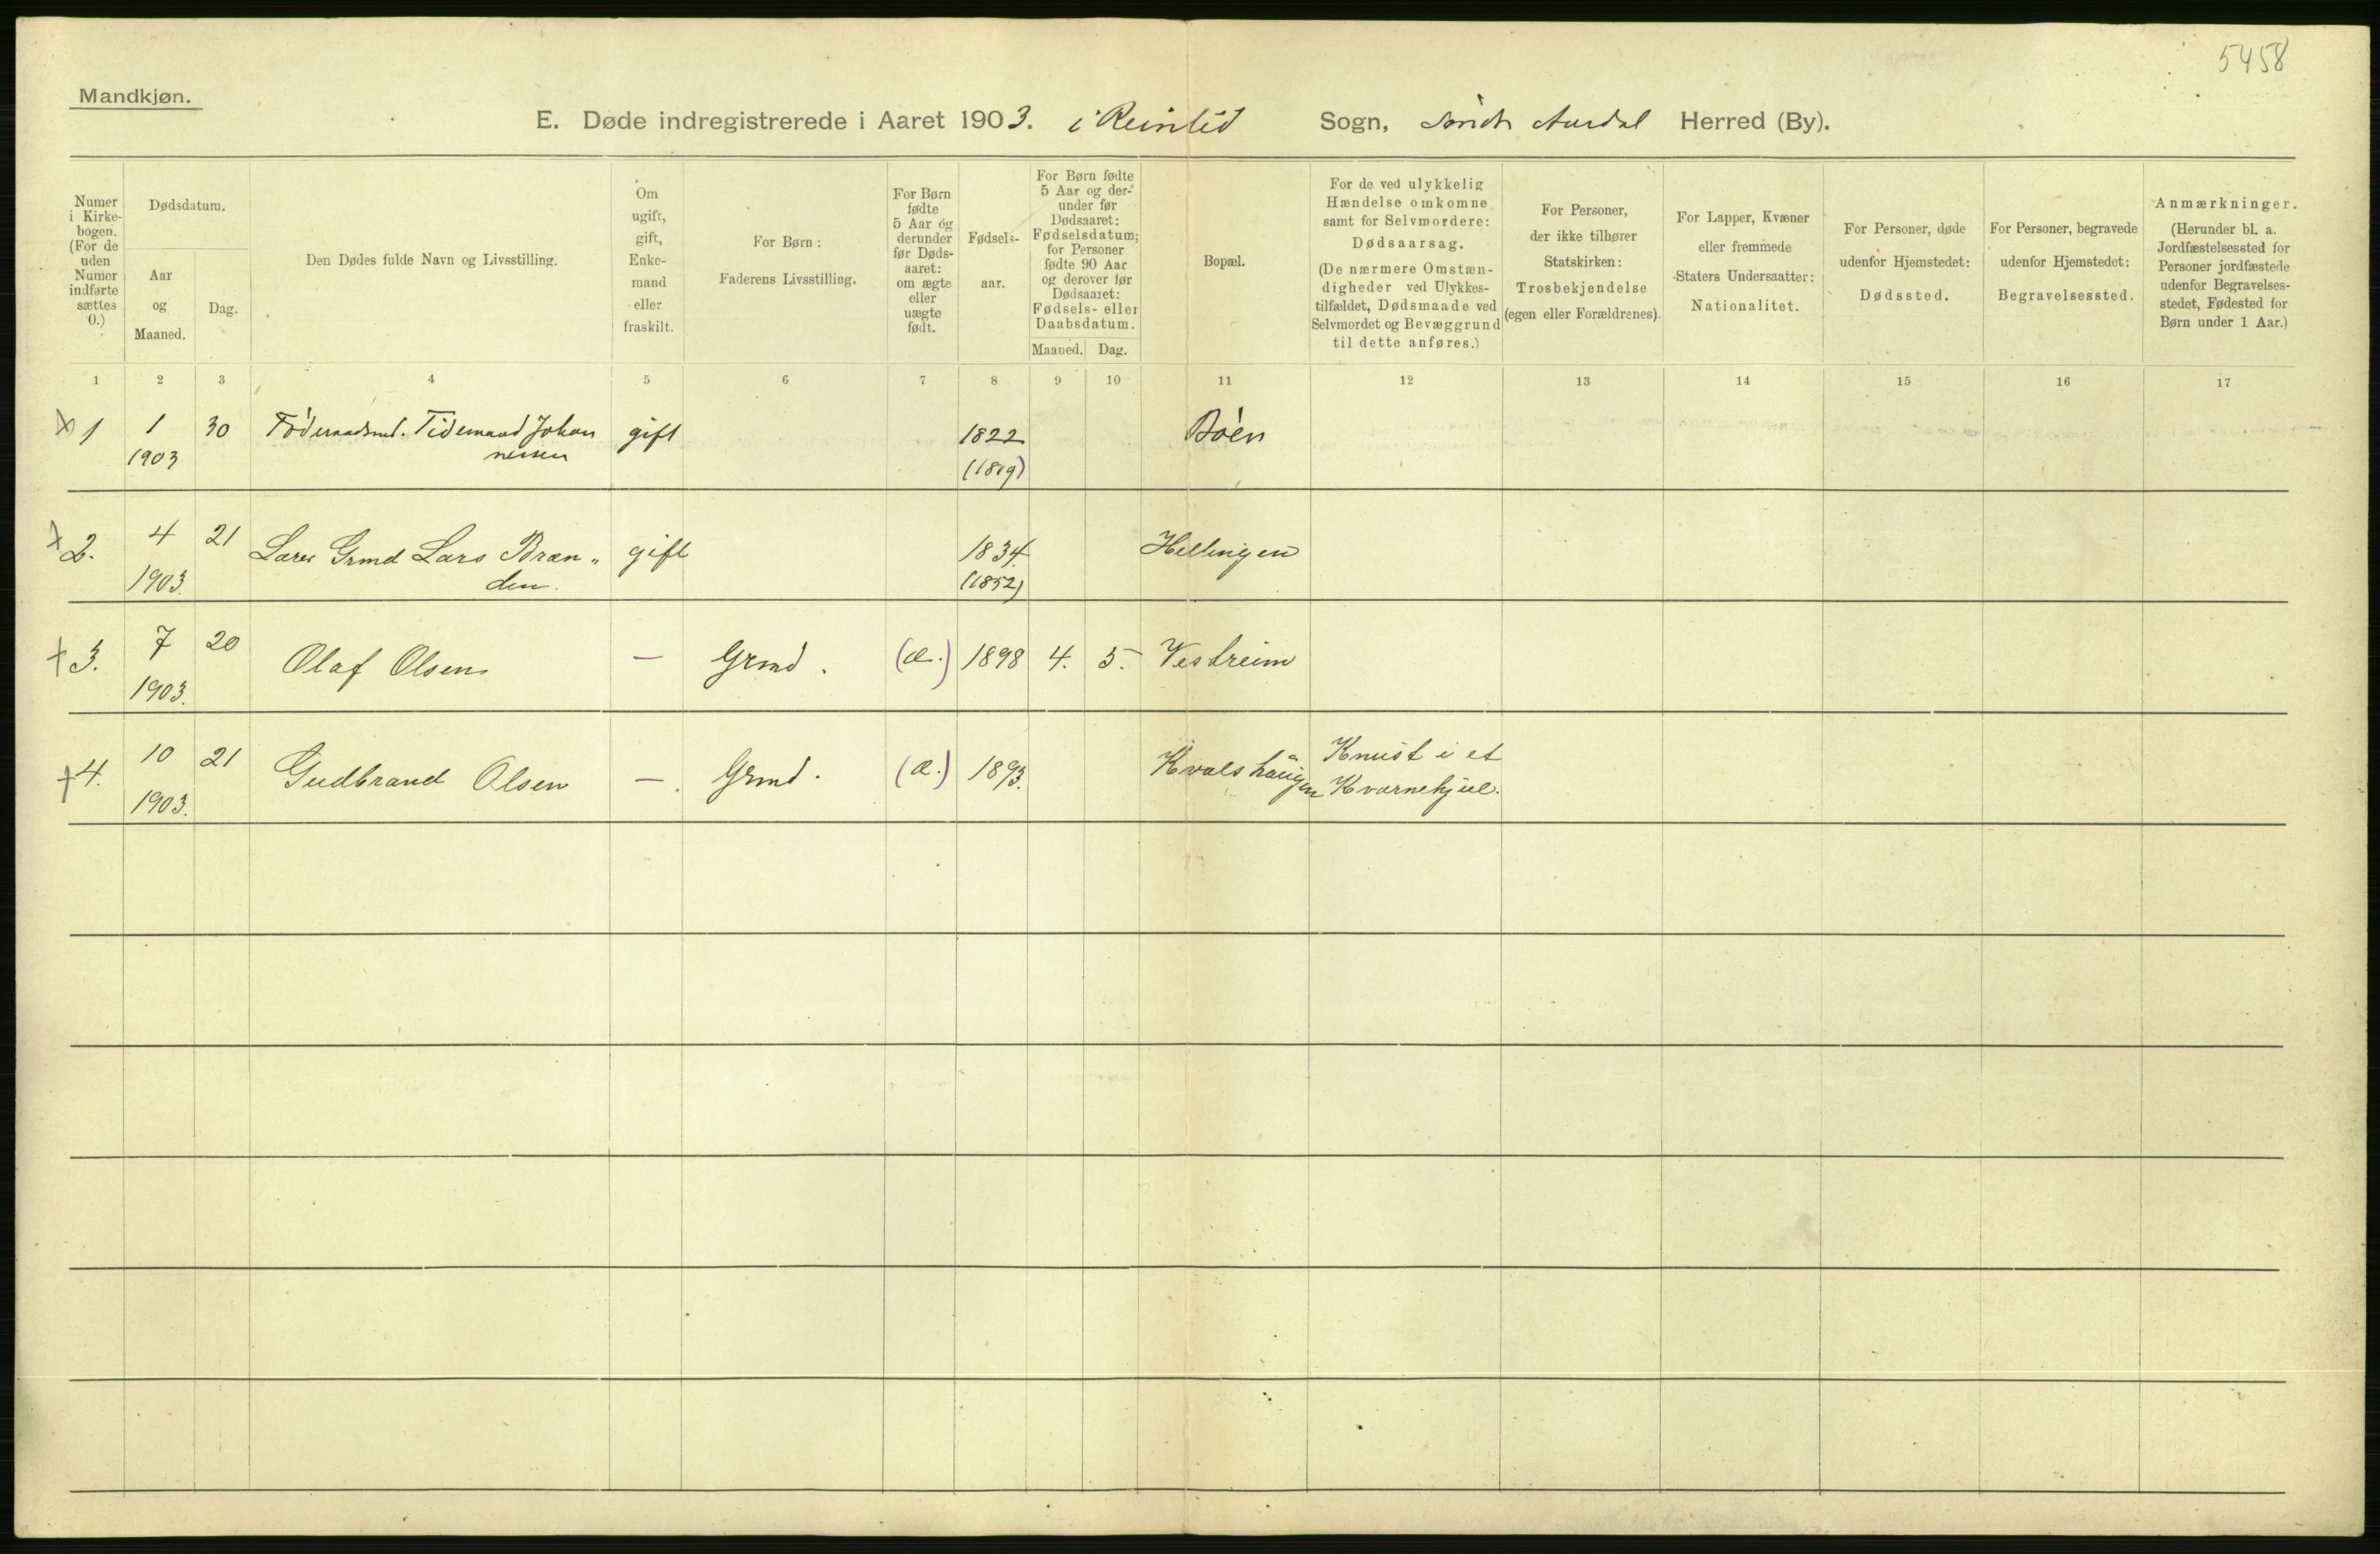 5458
Mandkjøn.
E. Døde indregistrerede i Aaret 1903. i Reinlid Sogn, Søndr Aurdal Herred (By).
Numer i Kirke-bogen. (For de uden Numer indførte sættes 0.)
Dødsdatum.
Aar og Maaned.
Dag.
Den Dødes fulde Navn og Livsstilling.
Om ugift, gift, Enke-mand eller fraskilt.
For Børn:
Faderens Livsstilling.
For Børn fødte 5 Aar og derunder før Døds-aaret: om ægte eller uægte født.
Fødsels-aar.
For Børn fødte 5 Aar og der-under før Dødsaaret: Fødselsdatum; for Personer fødte 90 Aar og derover før Dødsaaret: Fødsels- eller Daabsdatum.
Maaned. Dag.
Bopæl.
For de ved ulykkelig Hændelse omkomne samt for Selvmordere: Dødsaarsag.
(De nærmere Omstæn-digheder ved Ulykkes-tilfældet, Dødsmaade ved Selvmordet og Bevæggrund til dette anføres.)
For Personer, der ikke tilhører Statskirken: Trosbekjendelse (egen eller Forældrenes).
For Lapper, Kvæner eller fremmede Staters Undersaatter: Nationalitet.
For Personer, døde udenfor Hjemstedet: Dødssted.
For Personer, begravede udenfor Hjemstedet: Begravelsessted.
Anmærkninger.
(Herunder bl. a. Jordfæstelsessted for Personer jordfæstede udenfor Begravelses-stedet, Fødested for Børn under 1 Aar.)
1 2 3 4 5 6 7 8 9 10 11 12 13 14 15 16 17
1 1 30 Föderaadsmd. Tidemand Johan gift 1822 Böen
1903 nessen (1819)
2. 4 21 Grmd Lars Bræn„ gift 1834. Hellingen
1903. den. (1852)
3. 7 20 Olaf Olsen — Grmd. (æ.) 1898 4. 5. Vestreim
1903.
4. 10 21 Gudbrand Olsen — Grmd. (æ.) 1893. Kvalshaugen Knust i et
1903. Kværnehjul.